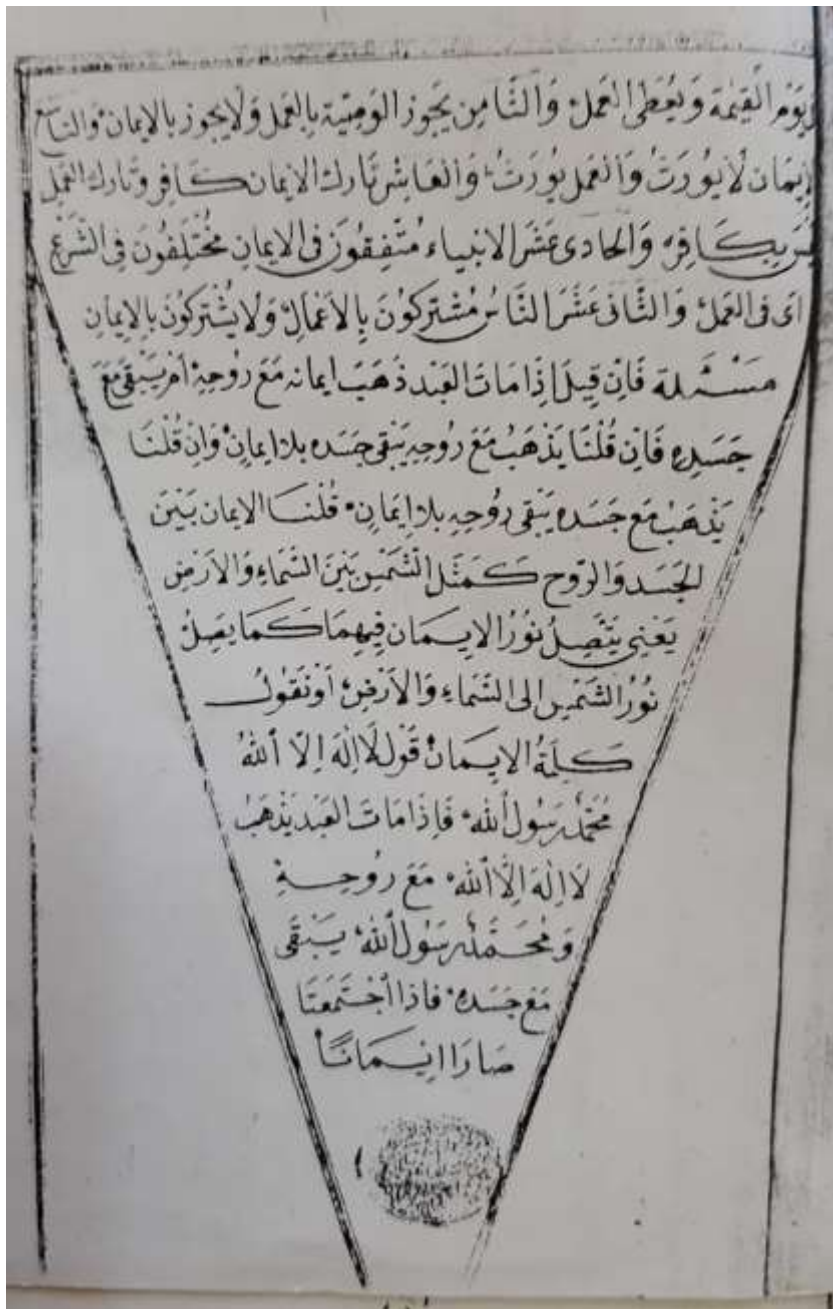 يَوْمِ الْقِيٰمَةِ وَيُعْطَى الْعَمَلُ وَالثَّامِن يَجُوز الْوَصِيَّة بِالْعَمَل وَلَا يَجُوز بِالْإِيمَان وَالتَّاسِع
الْإِيمَان لَا يُورَثُ وَالْعَمَل يُورَثُ وَالْعَاشِر تَارِك الْإِيمَان كَافِر وَتَارِك الْعَمَل
لَيْسَ بِكَافِر وَالْحَادِى عَشَرَ الْأَنْبِيَاء مُتَّفِقُونَ فِى الْإِيمَانِ مُخْتَلِفُونَ فِى الشَّرْعِ
اَىْ فِى الْعَمَلِ وَالثَّانِى عَشَرَ النَّاسُ مُشْتَرِكُونَ بِالْأَعْمَالِ وَلَا يُشْتَرِكُونَ بِالْإِيمَانِ
مَسْئَلَة فَاِنْ قِيلَ اِذَا مَاتَ الْعَبْد ذَهَبَ اِيمَانه مَعَ رُوحِهِ اَمْ يَبْقَى مَعَ
جَسَدِهِ فَاِنْ قُلْنَا يَذْهَبُ مَعَ رُوحِهِ يَبْقَى جَسَده بِلَا اِيمَانٍ وَاِنْ قُلْنَا
يَذْهَبُ مَعَ جَسَدِه يَبْقَى رُوحِهِ بِلَا اِيمَانٍ قُلْنَا الْاِيمَان بَيْنَ
الْجَسَد وَالرُّوح كَمَثَل الشَّمْسِ بَيْنَ السَّمَاءِ وَالْاَرْضِ
يَعْنِى يَتَّصِلُ نُورُ الْاِيمَان فِيهِمَا كَمَا يَصِلُ
نُورُ الشَّمْسِ اِلَى السَّمَاءِ وَالْاَرْضِ اَوْ نَقُولُ
كَلِمَةُ الْاِيمَانِ قَوْل لَا اِلٰهَ اِلَّا اللهُ
مُحَمَّدٌ رَسُولُ اللهِ فَاِذَا مَاتَ الْعَبْد يَذْهَبُ
لَا اِلٰهَ اِلَّا اللهُ مَعَ رُوحِهِ
وَمُحَمَّدٌ رَسُولُ اللهِ يَبْقَى
مَعَ جَسَدِهِ فَاِذَا اجْتَمَعَتَا
صَارَا اِيمَانًا